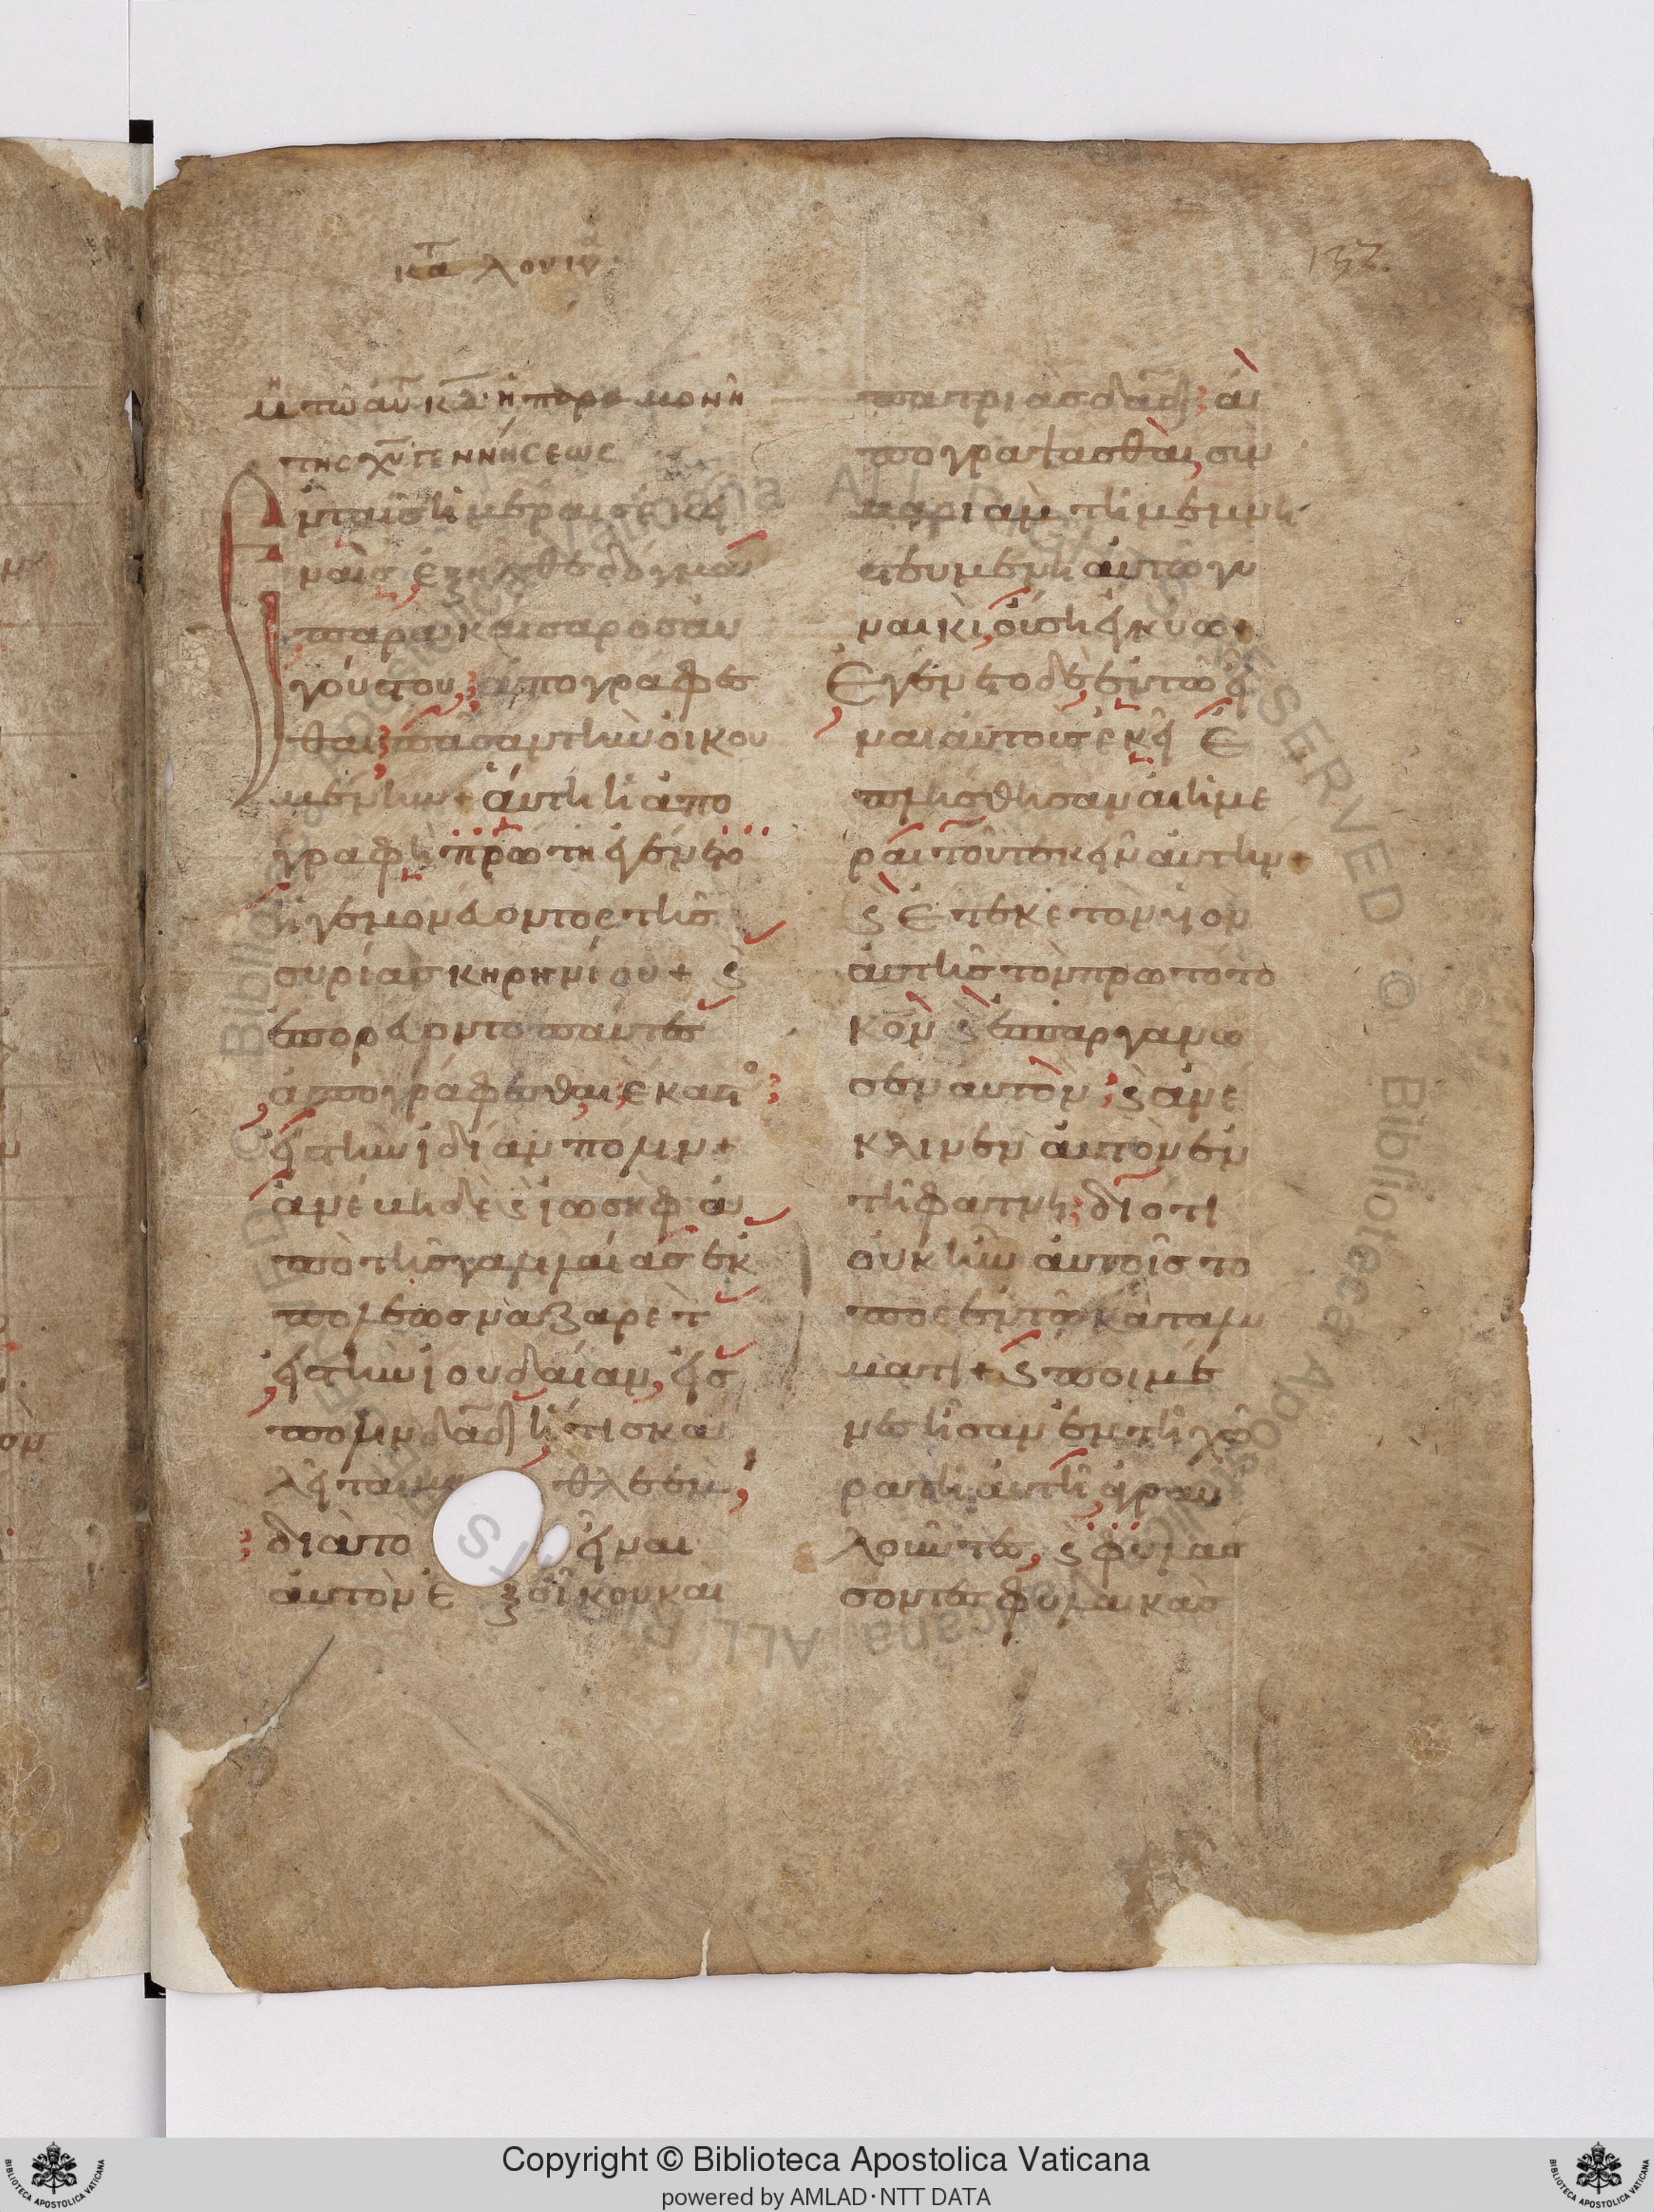 κτα λουκα
137.
μη τω αυτω κδ η παραμονη
της χυ γεννήσεως
Εν ταῖς ἡμέραις ἐκεί
ναις, ἐξῆλθε δόγμα
παρα καίσαρος αυ
γούστου, ἀπογράφεσ
θαι πᾶσαν τὴν ὀικου
μένην + ἁύτη ἡ ἀπο
γραφὴ πρώτη ἐγένετο
ἡγεμονέυοντος τῆς
συρίας κηρηνίου + ϛ
ἐπορέυοντο πάντες
ἀπογράφεσθαι, ἕκαστο
εἰς τὴν ἰδίαν πόλιν +
ἀνέβη δὲ ϛ ἰωσὴφ ἀ
πὸ τῆς γαλιλαίας ἐκ
πόλεως ναζαρὲτ
εἰς τὴν ἰουδαίαν, εἰς
πόλιν δαδ ἥτις κα
λεῖται βηθλεὲμ,
διὰ τὸ εἶναι
ἀυτὸν ἐξ ὄικου και
πατριᾶς δαδ; ἀ
πογράψασθαι, συν
μαριὰμ τῆ μεμνη
στευμένη ἀυτῶ γυ
ναικὶ, ὄυση ἐγκύω +
Ἐγένετο δὲ ἐν τῶ εἶ
ναι ἀυτοὺς ἐκεῖ Ἐ
πλήσθησαν ἁι ἡμέ
ραι τοῦ τεκεῖν ἀυτήν +
ϛ Ἔτεκε τὸν υἱὸν
ἀυτῆς τὸν πρωτότο
κον ϛ ἐσπαργάνω
σεν αυτὸν; ϛ ἀνέ
κλινεν ἀυτὸν ἐν
τῆ φάτνη; διότι
ουκ ἦν ἀυτοῖς τό
πος ἐν τῶ καταλύ
ματι + ϛ ποιμέ
νες ἦσαν ἐν τῆ χώ
ρα τῆ ἀυτῆ ἀγραυ
λοῦντες, ϛ φυλάσ
σοντες φυλακὰς
Copyright © Biblioteca Apostolica Vaticana
powered by AMLAD·NTT DATA